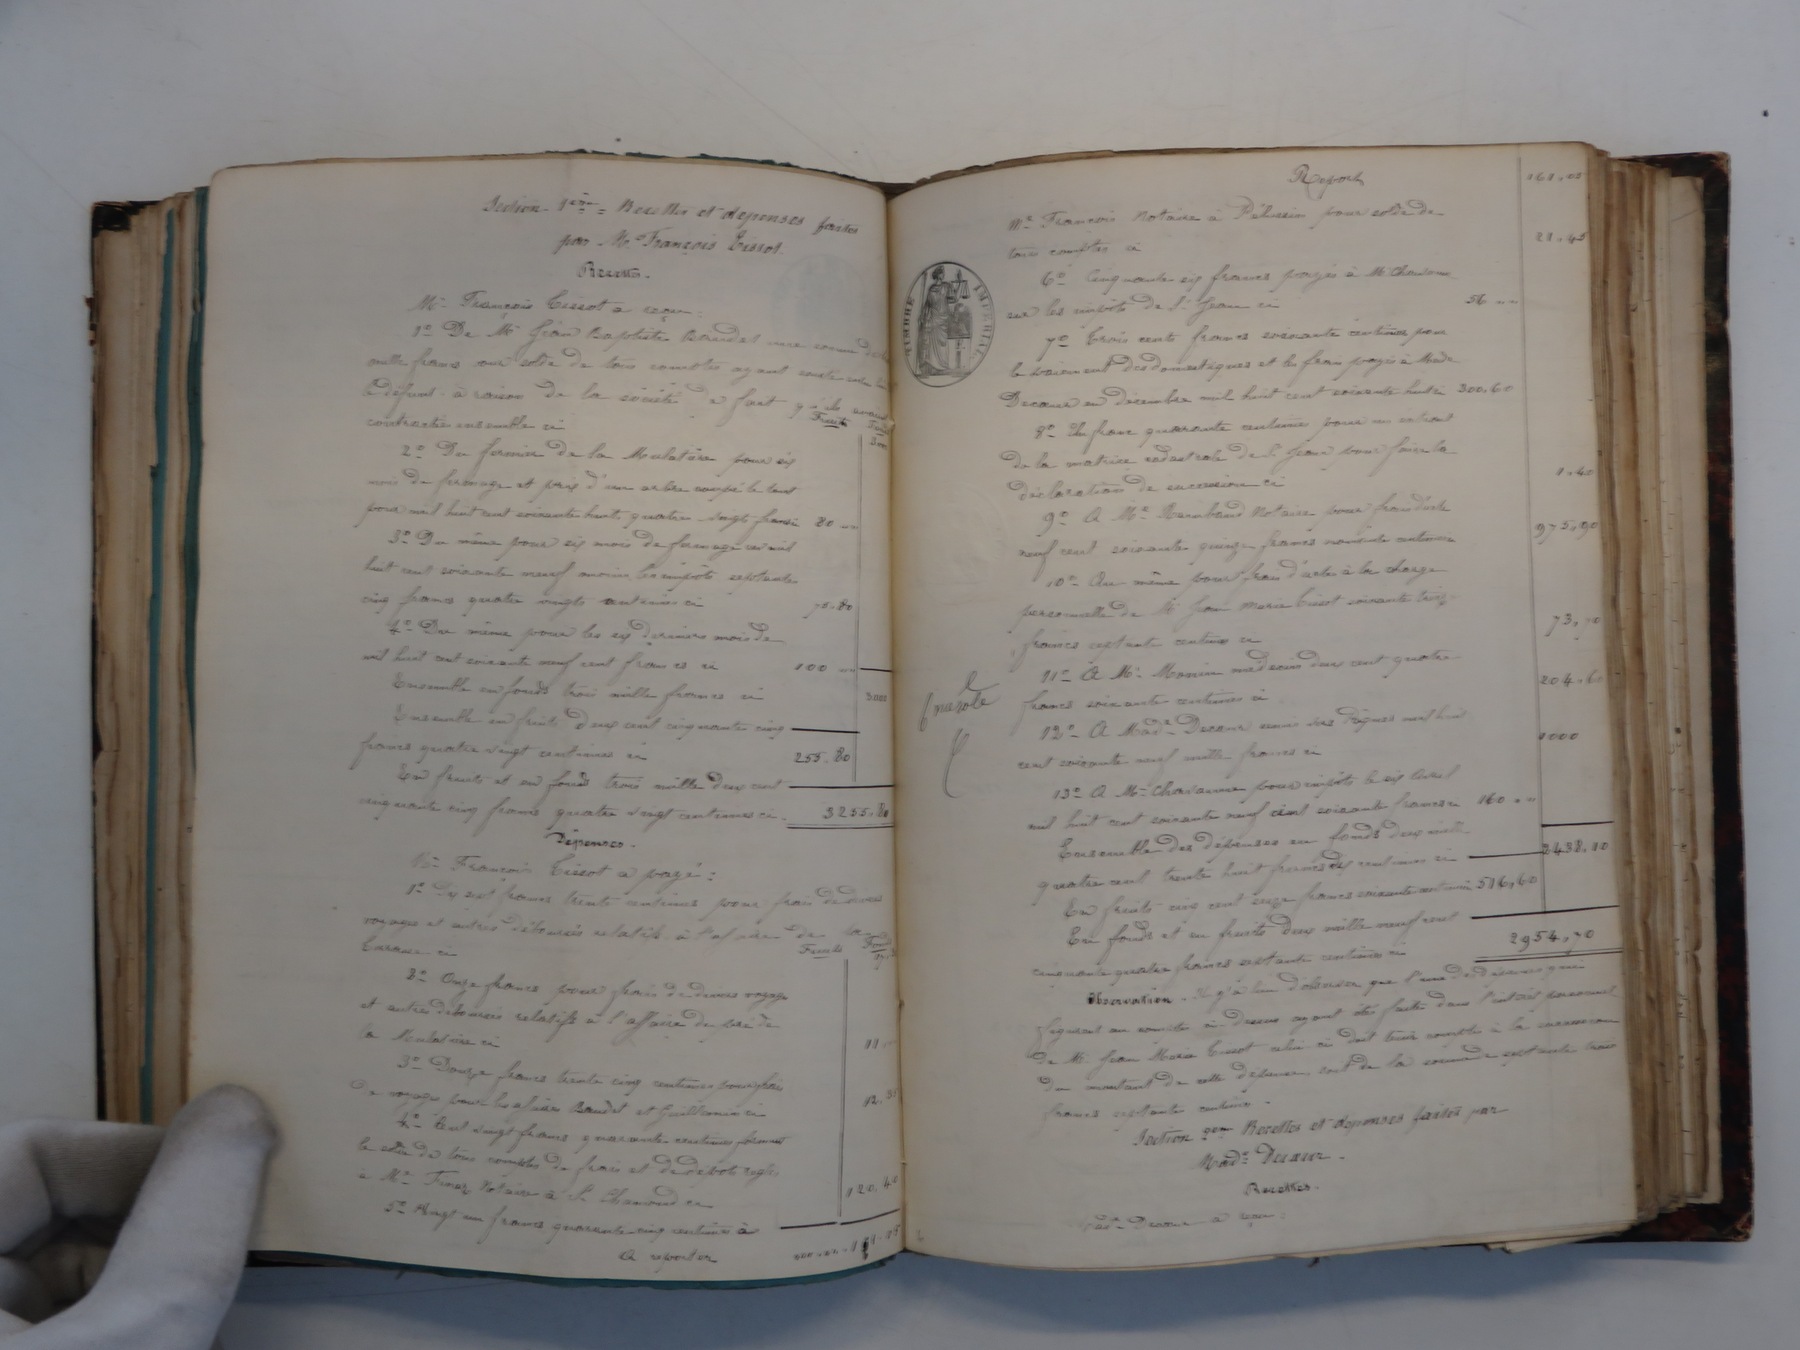 Section 1ère = Recettes et dépenses faites
par Mr François Tissot.
Recettes.
Mr François Tissot a reçu :
1º De Mr Jean Baptiste Baudet une somme de
mille francs pour solde de tous comptes ayant
le défunt à raison de la société de fait qu'ils avaient
contractée ensemble ci
Fruits
2º Du fermier de la Mulatière pour six
mois de fermage et prix d'un arbre coupé le tout
pour mil huit cent soixante huit quatre vingts francs 80
3º Du même pour six mois de fermage en mil
huit cent soixante neuf moins les impôts septante
cinq francs quatre vingts centimes ci 75.80
4º Du même pour les six derniers mois de
mil huit cent soixante neuf cent francs ci 100
Ensemble en fonds trois mille francs ci 3000
Ensemble en fruits deux cent cinquante cinq
francs quatre vingt centimes ci 255.80
En fruits et en fonds trois mille deux cent
cinquante cinq francs quatre vingt centimes ci. 3255.80
Dépenses.
Mr François Tissot a payé :
1º Dix sept francs trente centimes pour frais de divers
voyages et autres déboursés relatifs à l'affaire de la
ci
Fruits Fonds
2º Onze francs pour frais de divers voyages
et autres déboursés relatifs à l'affaire du pré de
la Mulatière ci 11
3º Douze francs trente cinq centimes pour frais
de voyages pour les affaires Baudet et Guillermin ci 12.35
4º Cent vingt francs quarante centimes formant
le solde de tous comptes de frais et de dépôts réglés
à Me Finaz Notaire à St Chamond ci 120.40
5º Vingt un francs quarante cinq centimes à
A reporter
Report 161.05
Me François Notaire à Pélussin pour solde de
tous comptes ci 21.45
6º Cinquante six francs payés à Mr Chavanne
sur les impôts de St Jean ci 56
7º Trois cents francs soixante centimes pour
le paiement des domestiques et les frais payés à Made
Decœur en décembre mil huit cent soixante huit ci 300.60
8º Un franc quarante centimes pour un extrait
de la matrice cadastrale de St Jean pour faire la
déclaration de succession ci 1.40
9º A Me Rambaud Notaire pour frais d'acte
neuf cent soixante quinze francs nonante centimes 975.90
10º Au même pour frais d'acte à la charge
personnelle de Mr Jean Marie Tissot soixante treize
francs septante centimes ci 73.70
11º A Mr Monin médecin deux cent quatre
francs soixante centimes ci 204.60
12º A Made Decœur mil huit
cent soixante neuf mille francs ci 1000
13º A Mr Chavanne pour impôts le six Avril
mil huit cent soixante neuf cent soixante francs ci 160
Ensemble des dépenses en fonds deux mille
quatre cent trente huit francs dix centimes ci 2438.10
En fruits cinq cent seize francs soixante centimes 516.60
En fonds et en fruits deux mille neuf cent
cinquante quatre francs septante centimes ci 2954.70
Observation. Il y a lieu d'observer que l'une des dépenses qui
figurent au compte ci-dessus ayant été faite dans l'intérêt personnel
de Mr Jean Marie Tissot celui-ci doit tenir compte à la succession
du montant de cette dépense soit de la somme de septante trois
francs septante centimes.
Section 2ème Recettes et dépenses faites par
Made Decœur.
Recettes.
Made Decœur a reçu :
TIMBRE IMPERIAL